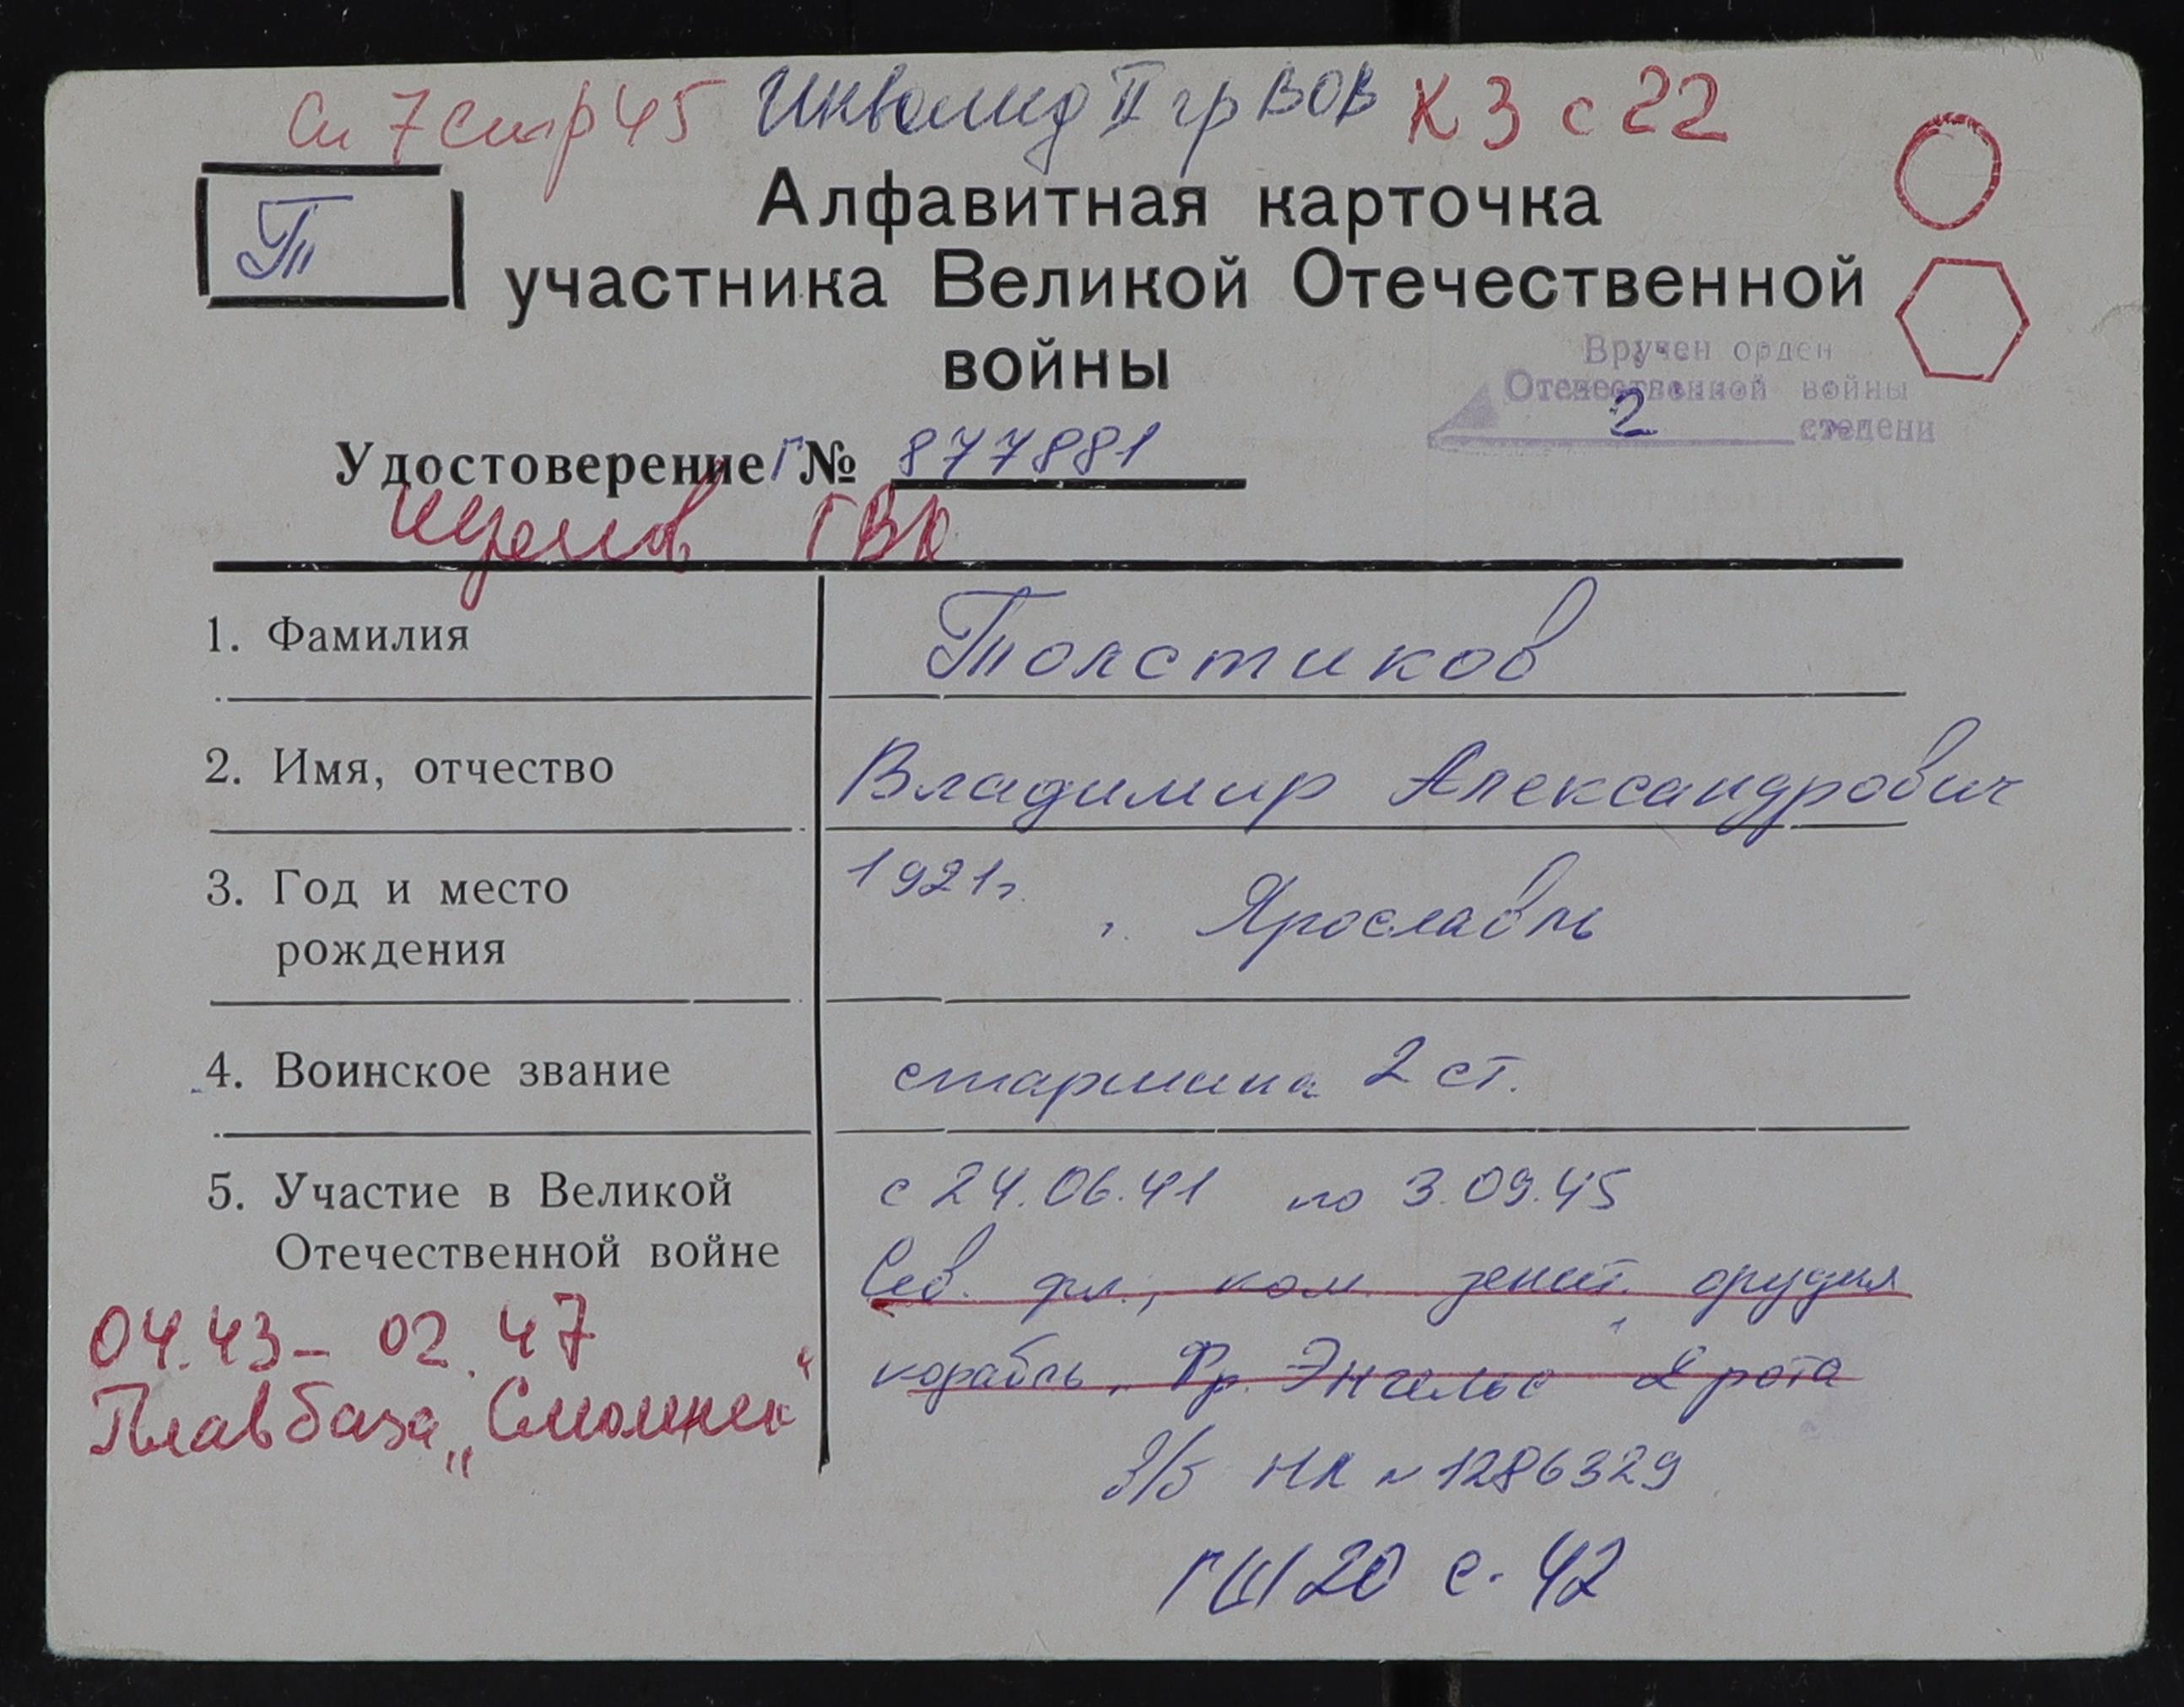 Сп 7 стр 45 Инвалид II гр ВОВ К 3 с 22
Т
Алфавитная карточка
участника Великой Отечественной
войны
Вручен орден
Отечественной войны
2 степени
Удостоверение Г № 877881
ГВК
1. Фамилия Толстиков
2. Имя, отчество Владимир Александрович
3. Год и место 1921г.
рождения г. Ярославль
4. Воинское звание старшина 2 ст.
5. Участие в Великой с 24.06.41 по 3.09.45
Отечественной войне Сев. фл., ком. зенит. орудия
04.43 – 02.47 корабль „Фр. Энгельс" 2 рота
Плавбаза „Смольный"
в/б НК № 1286329
ГШ 20 с. 42